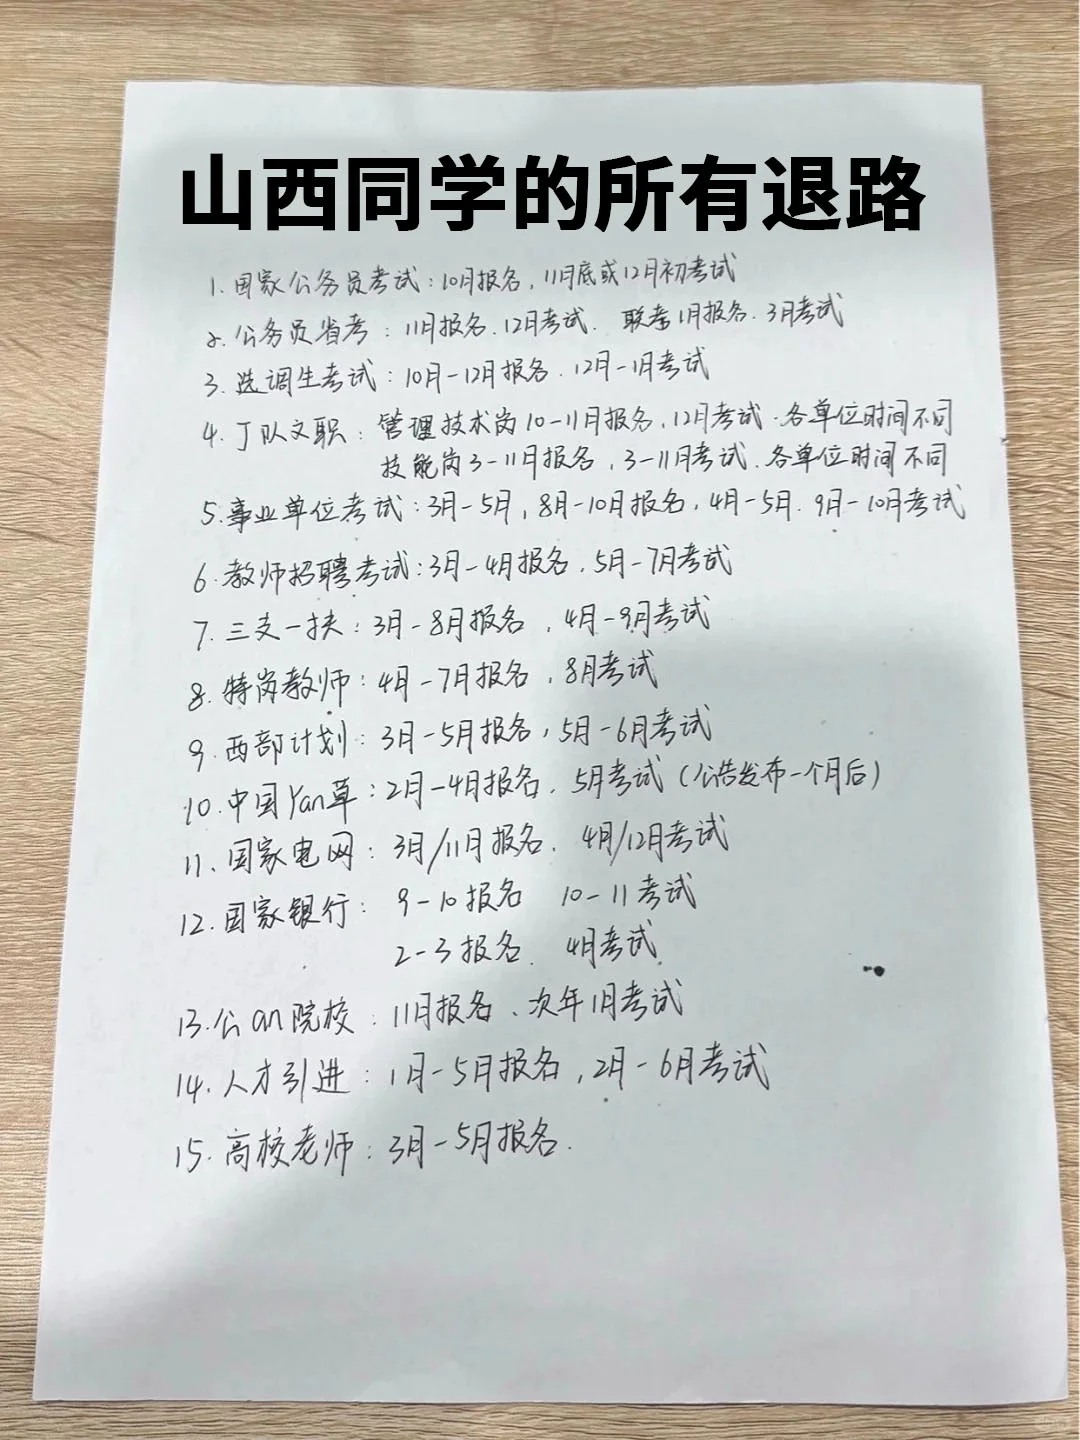 山西同学的所有退路
1.国家公务员考试:10月报名,11月底或12月初考试
2.公务员省考:11月报名.12月考试. 联考1月报名.3月考试
3.选调生考试:10月-12月报名.12月-1月考试
4.J队文职:管理技术岗10-11月报名,12月考试.各单位时间不同
技能岗3-11月报名,3-11月考试.各单位时间不同
5.事业单位考试:3月-5月,8月-10月报名,4月-5月.9月-10月考试
6.教师招聘考试:3月-4月报名.5月-7月考试
7.三支一扶:3月-8月报名,4月-9月考试
8.特岗教师:4月-7月报名,8月考试
9.西部计划:3月-5月报名,5月-6月考试
10.中国Yan草:2月-4月报名.5月考试(公告发布一个月后)
11.国家电网:3月/11月报名.4月/12月考试
12.国家银行:9-10报名 10-11考试
2-3报名.4月考试.
13.公an院校:11月报名、次年1月考试
14.人才引进:1月-5月报名,2月-6月考试
15.高校老师:3月-5月报名.